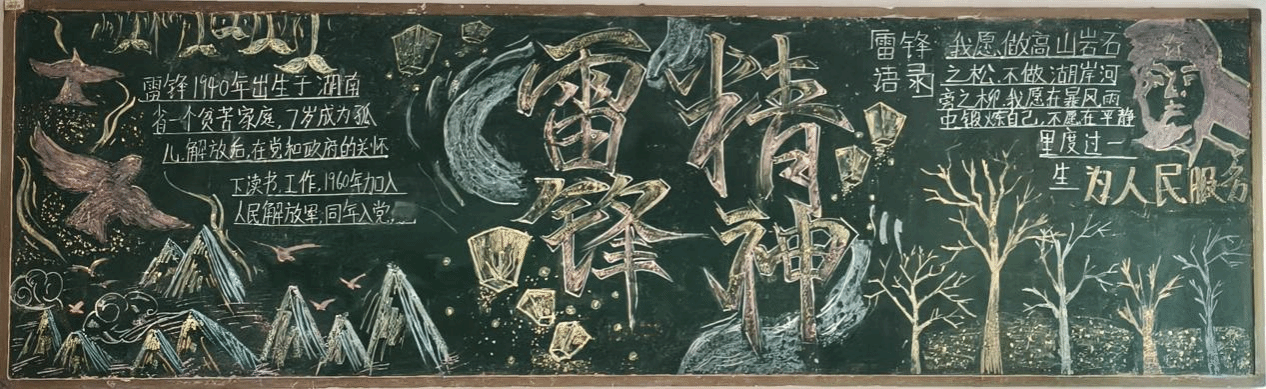 雷锋1940年出生于湖南
省一个贫苦家庭,7岁成为孤
儿.解放后,在党和政府的关怀
下读书,工作,1960年加入
人民解放军,同年入党.
雷锋
精神
雷锋
语录
我愿做高山岩石
之松,不做湖岸河
旁之柳.我愿在暴风雨
中锻炼自己,不愿在平静
里度过一
生
为人民服务